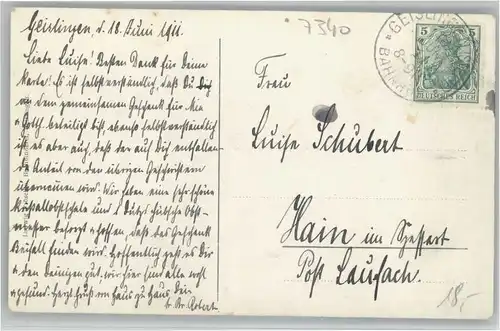 Geislingen, d. 18. Juni 1911.
Liebe Luise! Besten Dank für Deine
Karte! Es ist selbstverständlich, daß Du Dich
an dem gemeinsamen Geschenk für Mia
u. Gotth. beteiligst, ebenso selbstverständlich
ist es aber auch, daß der auf Dich entfallen-
de Anteil von den übrigen Geschwistern
übernommen wird. Wir haben eine sehr schöne
Kristallobstschale und 1 Dutz. hübsche Obst-
messer besorgt u. hoffen, daß das Geschenk
Beifall finden wird. Hoffentlich geht es Dir
u. den Deinigen gut, wir hier sind alle wohl
u. gesund. Herzl. Gruß von Haus zu Haus Dein
tr. Br. Robert.
7340
GEISLINGEN
8-9
BAHNH
5 5
DEUTSCHES REICH
Frau
Luise Schubert
Hain im Spessart
Post Laufach.
18,-